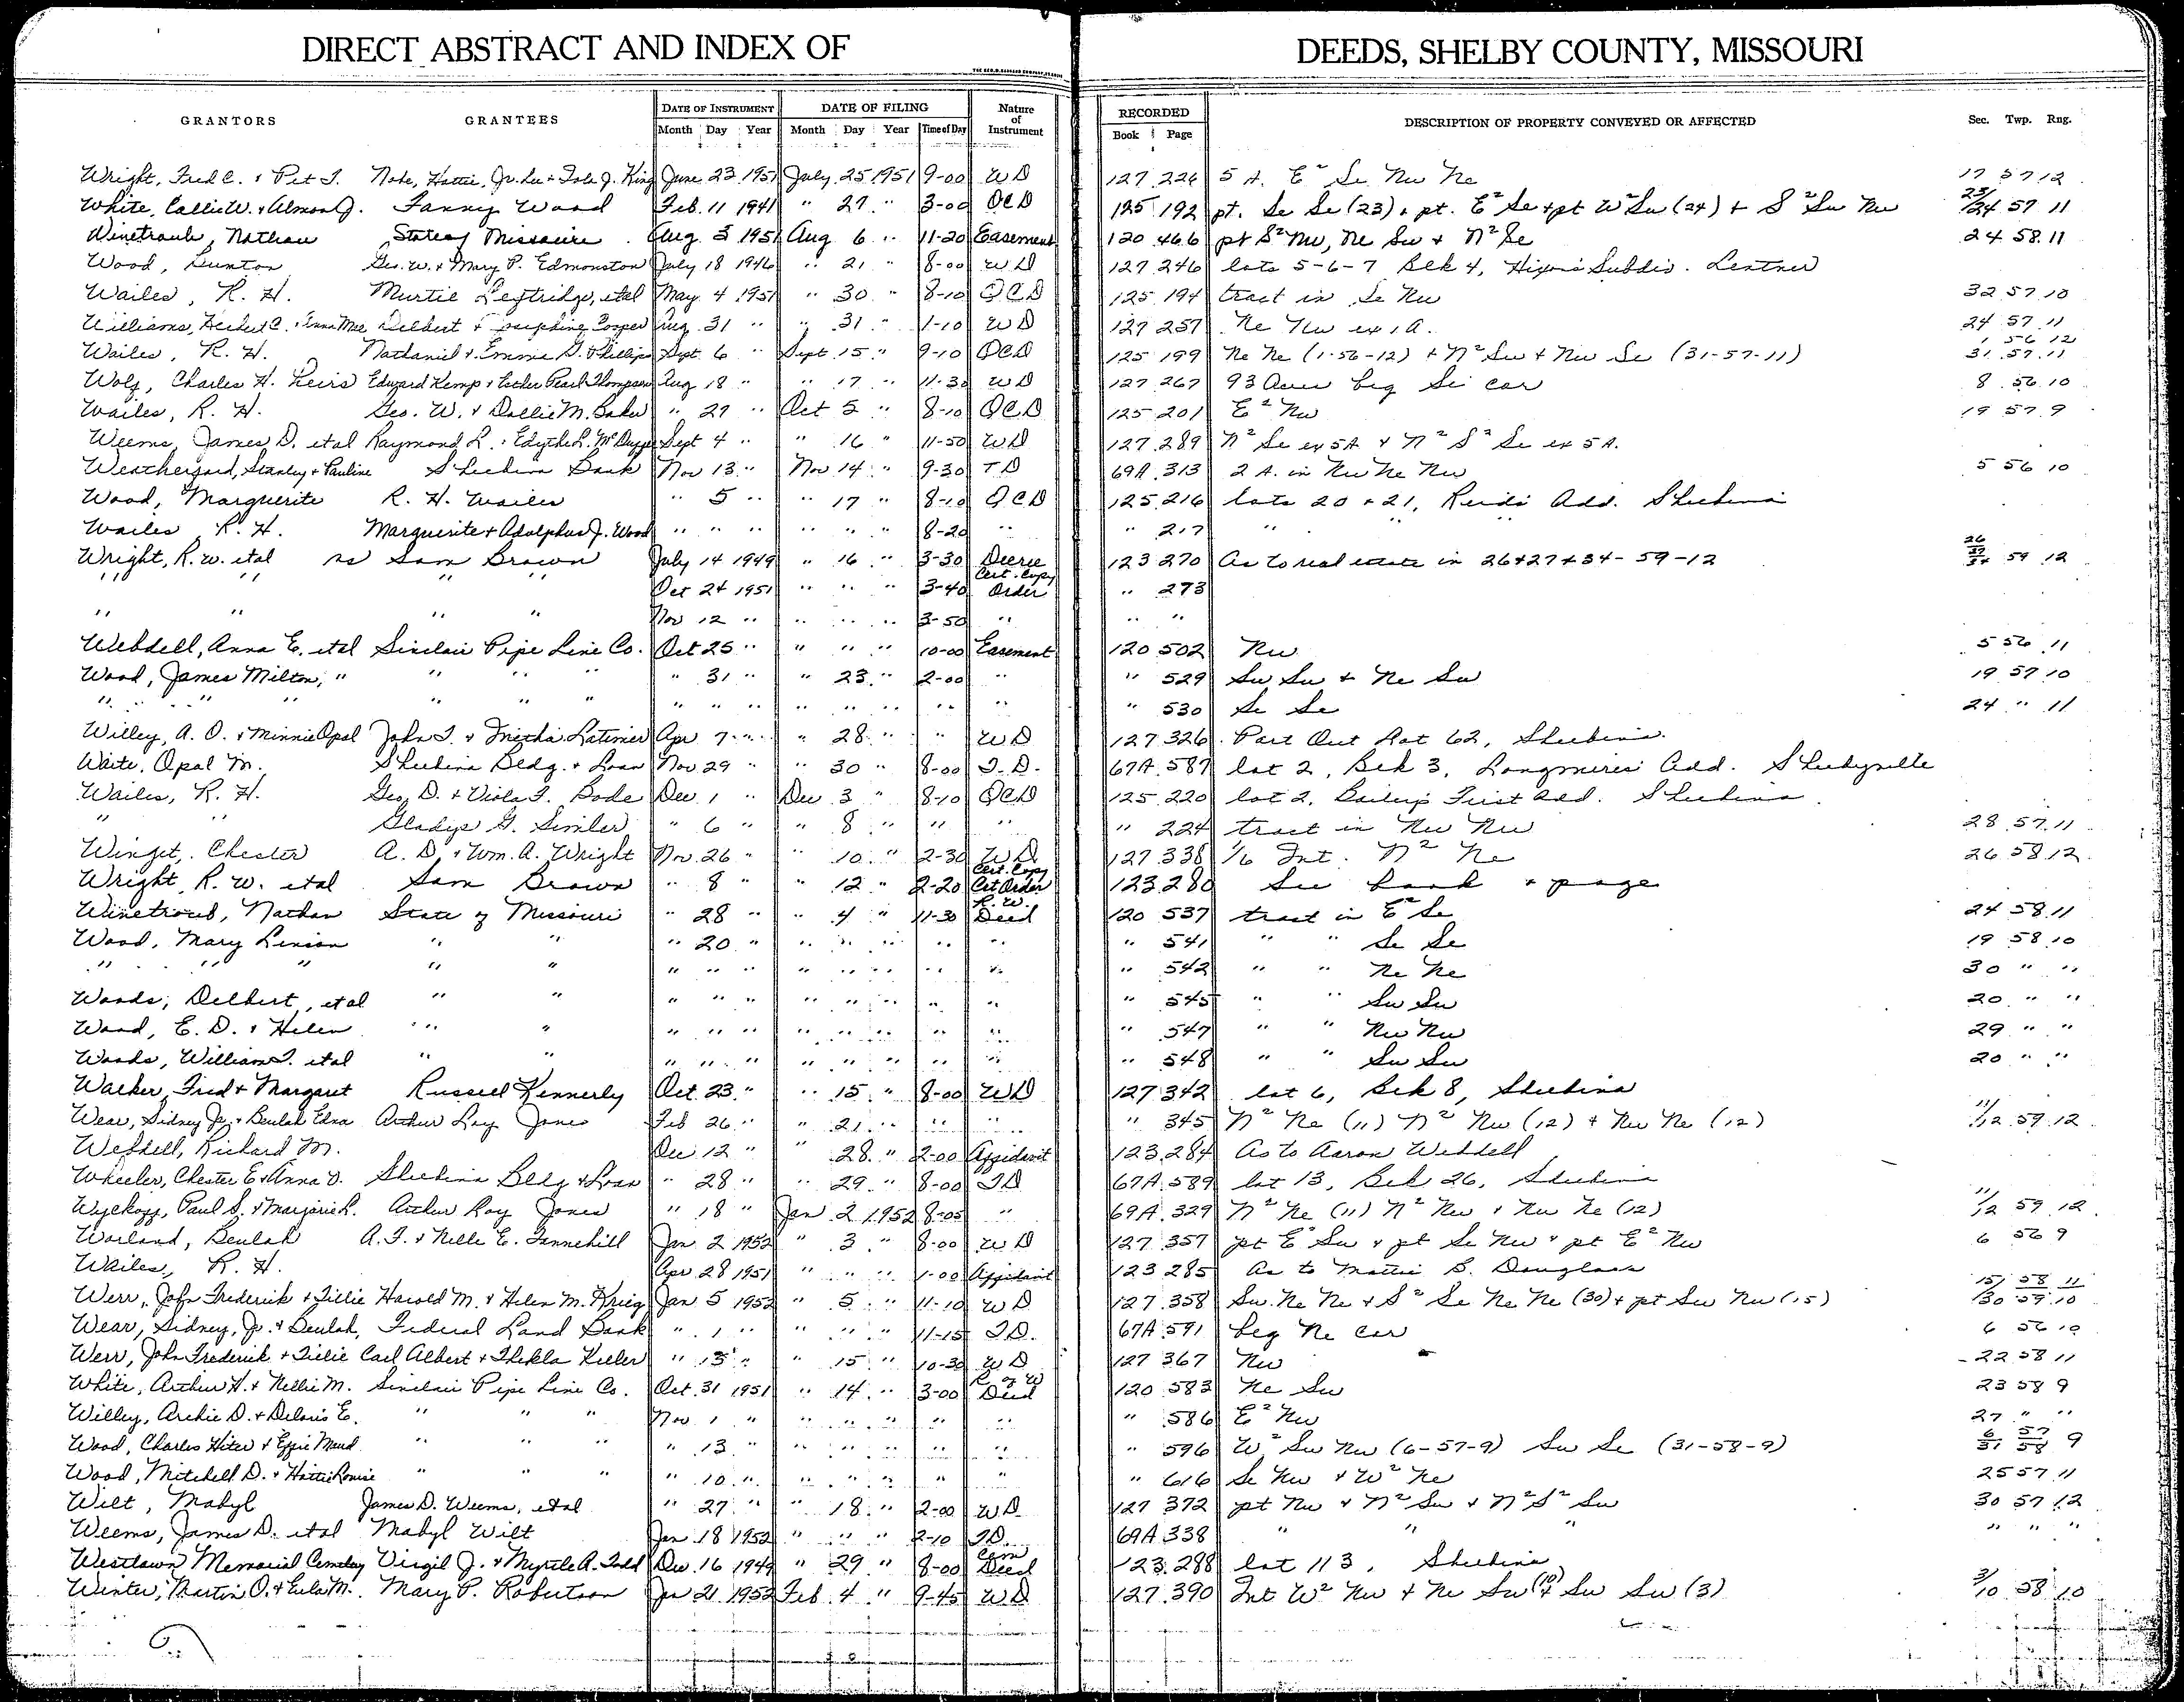 DIRECT ABSTRACT AND INDEX OF DEEDS, SHELBY COUNTY, MISSOURI
GRANTORS GRANTEES DATE OF INSTRUMENT DATE OF FILING Nature of Instrument RECORDED DESCRIPTION OF PROPERTY CONVEYED OR AFFECTED Sec. Twp. Rng.
Month Day Year Month Day Year Time of Day Book Page
Wright, Fred C. + Pet T. Noke, Hattie, Jr. Lee + Zola J. King June 23 1951 July 25 1951 9-00 WD 127 226 5 A. E² Se Nw Ne 17 57 12
White, Callie W. + Almon J. Fanny Wood Feb. 11 1941 " 27 " 3-00 QCD 125 192 pt. Se Se (23) + pt. E² Se + pt W² Sw (24) + S² Sw Nw 23/24 57 11
Winetraub, Nathan State of Missouri Aug. 3 1951 Aug 6 " 11-20 Easement 120 466 pt S² Nw, Ne Sw + N² Se 24 58 11
Wood, Bunton Geo. W. + Mary P. Edmonston July 18 1946 " 21 " 8-00 WD 127 246 lots 5-6-7 Blk 4, Hixon's Subdiv. Lentner
Wailes, R. H. Murtie Leftridge, etal May 4 1951 " 30 " 8-10 QCD 125 194 tract in Se Nw 32 57 10
Williams, Herbert C. + Anna Mae Delbert + Josephine Cooper Aug. 31 " " 31 " 1-10 WD 127 257 Ne Nw ex 1 A. 24 57 11
Wailes, R. H. Nathaniel + Emma G. Phillips Sept. 6 " Sept. 15 " 9-10 QCD 125 199 Ne Ne (1-56-12) + N² Sw + Nw Se (31-57-11) 1 56 12 31 57 11
Wolf, Charles H. Heirs Edward Kemp + Esther Pearl Thompson Aug 18 " " 17 " 11-30 WD 127 267 93 Acres beg Se cor 8 56 10
Wailes, R. H. Geo. W. + Dollie M. Baker " 27 " Oct 5 " 8-10 QCD 125 201 E² Nw 19 57 9
Weems, James D. etal Raymond L. + Edythe L. Sept 4 " " 16 " 11-50 WD 127 289 N² Se ex 5 A + N² S² Se ex 5 A.
Weatherford, Stanley + Pauline Shelbina Bank Nov 13 " Nov 14 " 9-30 TD 69A 313 2 A. in Nw Ne Nw 5 56 10
Wood, Marguerite R. H. Wailes " 5 " " 17 " 8-10 QCD 125 216 lots 20 + 21, Reids Add. Shelbina
Wailes R. H. Marguerite + Adolphus J. Wood " " " " " " 8-20 " " 217 " " "
Wright, R. W. etal vs Sam Brown July 14 1949 " 16 " 3-30 Decree 123 270 As to real estate in 26+27+34-59-12 26 27 34 59 12
" " " " Oct 24 1951 " " " 3-40 Cert. Copy Order " 273
" " " " Nov 12 " " " " 3-50 " " "
Webdell, Anna E. etal Sinclair Pipe Line Co. Oct 25 " " " " 10-00 Easement 120 502 Nw 5 56 11
Wood, James Milton, " " " " " 31 " " 23 " 2-00 " " 529 Sw Sw + Ne Sw 19 57 10
" " " " " " " " " " " " " " " 530 Se Se 24 " 11
Willey, A. O. + Minnie Opal John T. + Initha Latimer Apr 7 " " 28 " " WD 127 326 Part Out Lot 62, Shelbina
Waite, Opal M. Shelbina Bldg. + Loan Nov 29 " " 30 " 8-00 T.D. 67A 587 lot 2, Blk 3, Longmires Add. Shelbyville
Wailes, R. H. Geo. D. + Viola F. Bode Dec 1 " Dec 3 " 8-10 QCD 125 220 lot 2, Baileys First Add. Shelbina
" " Gladys G. Similer " 6 " " 8 " " " " 224 tract in Nw Nw 28 57 11
Winget, Chester A. D. + Wm. A. Wright Nov. 26 " " 10 " 2-30 WD 127 338 1/6 Int. N² Ne 26 58 12
Wright, R. W. etal Sam Brown " 8 " " 12 " 2-20 Cert. Copy Crt Order 123 280 See book + page
Winetroub, Nathan State of Missouri " 28 " " 4 " 11-30 R. W. Deed 120 537 tract in E² Se 24 58 11
Wood, Mary Linson " " " 20 " " " " " " " 541 " " Se Se 19 58 10
" " " " " " " " " " " " " " 542 " " Ne Ne 30 " "
Woods, Delbert, etal " " " " " " " " " " " 545 " " Sw Sw 20 " "
Wood, E. D. + Helen " " " " " " " " " " " 547 " " Nw Nw 29 " "
Woods, William T. etal " " " " " " " " " " " 548 " " Sw Sw 20 " "
Walker, Fred + Margaret Russell Kennerly Oct. 23 " " 15 " 8-00 WD 127 342 lot 6, Blk 8, Shelbina
Wear, Sidney Jr. + Beulah Edna Arthur Loy Jones Feb 26 " " 21 " " " " 345 N² Ne (11) N² Nw (12) + Nw Ne (12) 11/12 59 12
Webdell, Richard M. Dec 12 " " 28 " 2-00 Affidavit 123 284 As to Aaron Webdell
Wheeler, Chester E + Anna V. Shelbina Bldg + Loan " 28 " " 29 " 8-00 TD 67A 589 lot 13, Blk 26, Shelbina
Wyckoff, Paul S. + Marjorie L. Arthur Roy Jones " 18 " Jan 2 1952 8-05 " 69A 329 N² Ne (11) N² Nw + Nw Ne (12) 11/12 59 12
Worland, Beulah A. F. + Nelle E. Tannehill Jan 2 1952 " 3 " 8-00 WD 127 357 pt E² Sw + pt Se Nw + pt E² Nw 6 56 9
Wailes, R. H. Apr 28 1951 " " " 1-00 Affidavit 123 285 As to Mattie B. Douglass
Werr, John Frederick + Tillie Harold M. + Helen M. Krieg Jan 5 1952 " 5 " 11-10 WD 127 358 Sw Ne Ne + S² Se Ne Ne (30) + pt Sw Nw (15) 15/30 58 11 59 10
Wear, Sidney, Jr. + Beulah, Federal Land Bank " 1 " " " " 11-15 TD. 67A 591 beg Ne cor 6 56 10
Werr, John Frederick + Tillie Carl Albert + Thekla Keller " 15 " " 15 " 10-30 WD 127 367 Nw 22 58 11
White, Arthur H. + Nellie M. Sinclair Pipe Line Co. Oct. 31 1951 " 14 " 3-00 R of W Deed 120 583 Ne Sw 23 58 9
Willey, Archie D. + Deloris E. " " " Nov 1 " " " " " " " 586 E² Nw 27 " "
Wood, Charles Hiter + Effie Maud " " " " 13 " " " " " " " 596 W² Sw Nw (6-57-9) Sw Se (31-58-9) 6/31 57/58 9
Wood, Mitchell D. + Hattie Louise " " " " 10 " " " " " " " 616 Se Nw + W² Ne 25 57 11
Wilt, Mabyl James D. Weems, etal " 27 " " 18 " 2-00 WD. 127 372 pt Nw + N² Sw + N² S² Sw 30 57 12
Weems, James D. etal Mabyl Wilt Jan 18 1952 " " " 2-10 TD. 69A 338 " " " " " "
Westlawn Memorial Cemetery Virgil J. + Myrtle A. Todd Dec. 16 1949 " 29 " 8-00 Cem Deed 123 288 lot 113, Shelbina
Winter, Martin O. + Eula M. Mary P. Robertson Jan 21 1952 Feb 4 " 9-45 WD 127 390 Int W² Nw + Ne Sw (10) + Sw Sw (3) 3/10 58 10